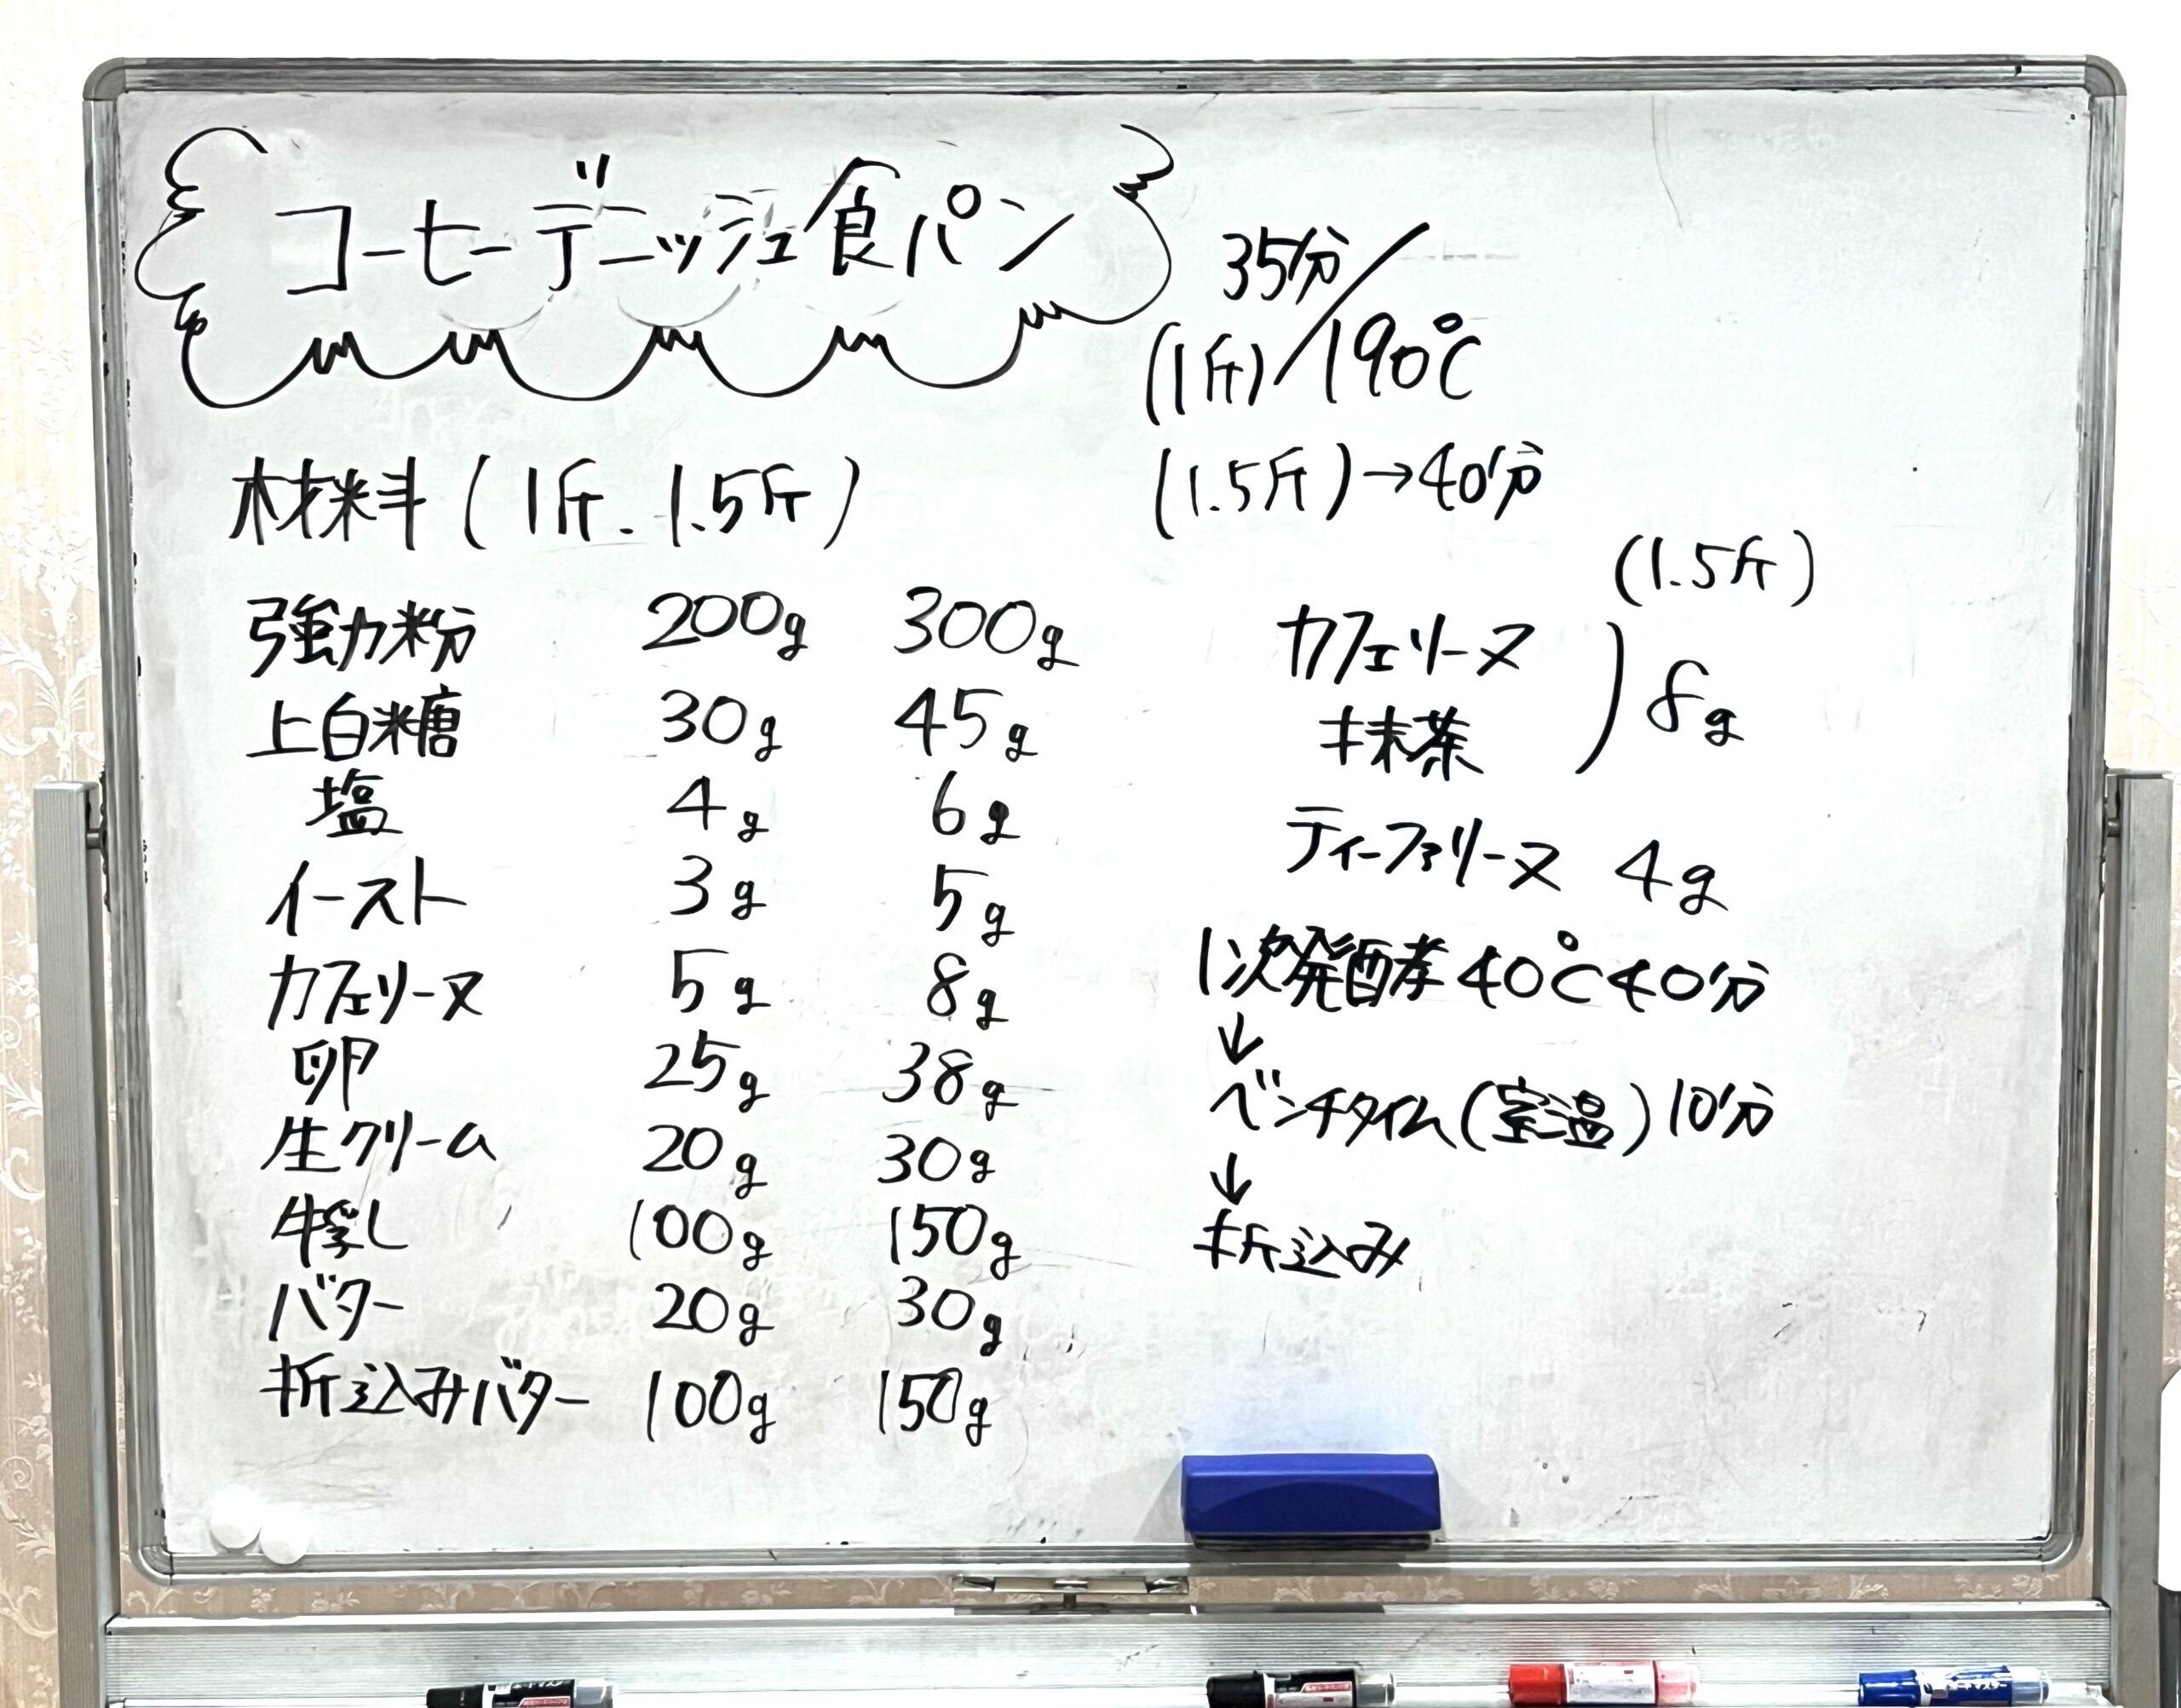 コーヒーデニッシュ食パン
35分/190℃
(1斤)
(1.5斤)→40分
材料(1斤.1.5斤)
強力粉 200g 300g
上白糖 30g 45g
塩 4g 6g
イースト 3g 5g
カフェリーヌ 5g 8g
卵 25g 38g
生クリーム 20g 30g
牛乳 100g 150g
バター 20g 30g
折込みバター 100g 150g
(1.5斤)
カフェリーヌ
抹茶 ) 8g
ティーファリーヌ 4g
1次発酵40℃40分
↓
ベンチタイム(室温)10分
↓
折込み